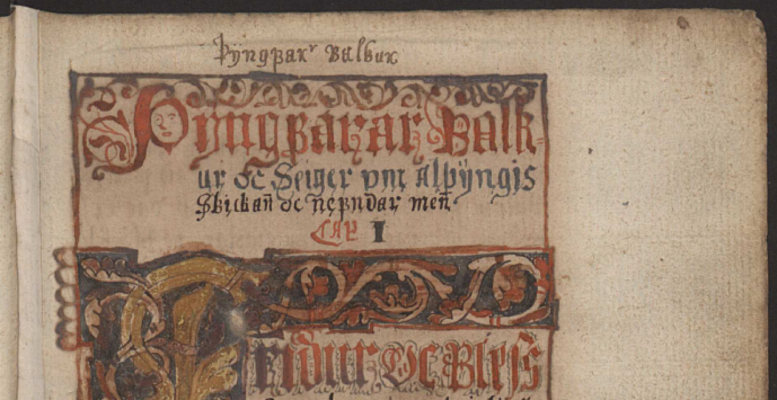 Þÿngꝼarʳ Balkur
Þÿngꝼarar Balk-
ur oc Seiger vm Alþÿngis
Skickan̄ oc neꝼndar men̄
CAP I
Fridur Oc Bless